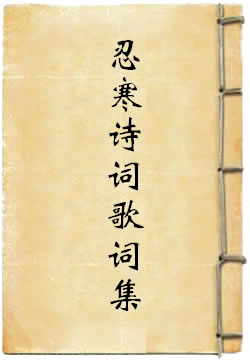 忍寒诗词歌词集